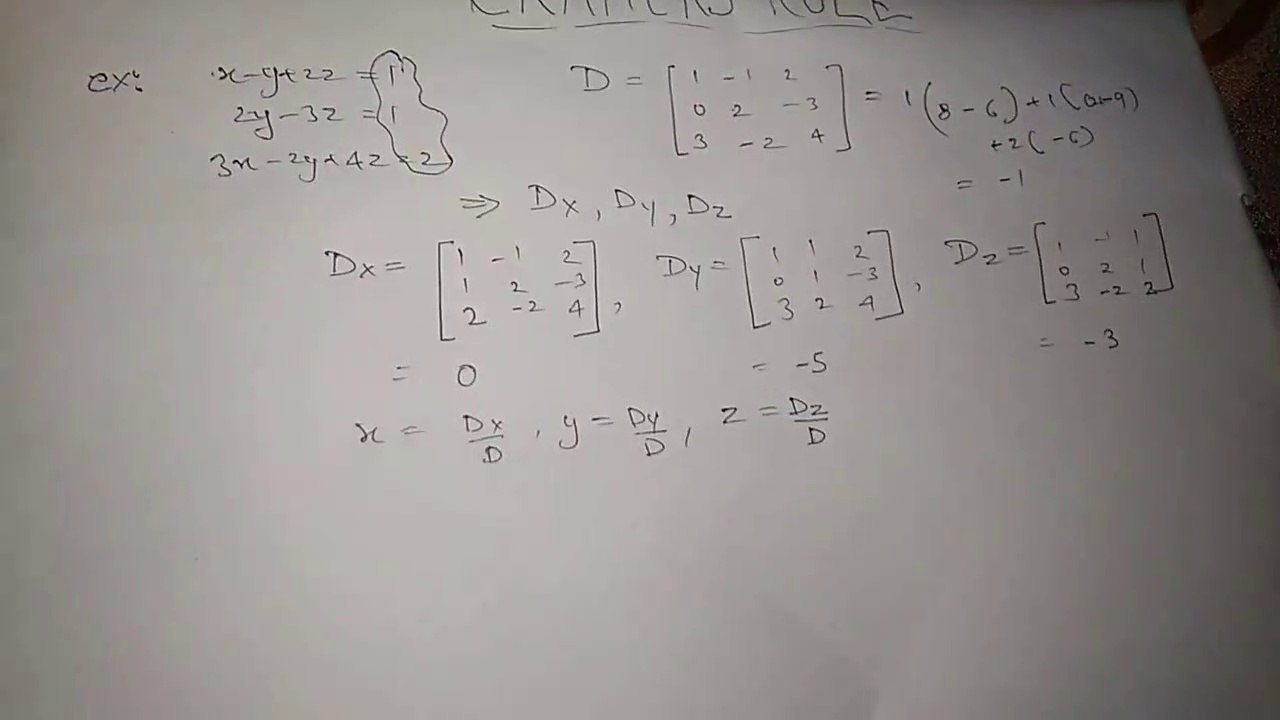 CRAMERS RULE
ex: x-y+2z = 1
2y-3z = 1
3x-2y+4z = 2
D = [1 -1 2
0 2 -3
3 -2 4] = 1(8-6)+1(0+9)
+2(-6)
= -1
⇒ Dx, Dy, Dz
Dx = [1 -1 2
1 2 -3
2 -2 4],
= 0
Dy = [1 1 2
0 1 -3
3 2 4],
= -5
Dz = [1 -1 1
0 2 1
3 -2 2]
= -3
x = Dx/D, y = Dy/D, z = Dz/D